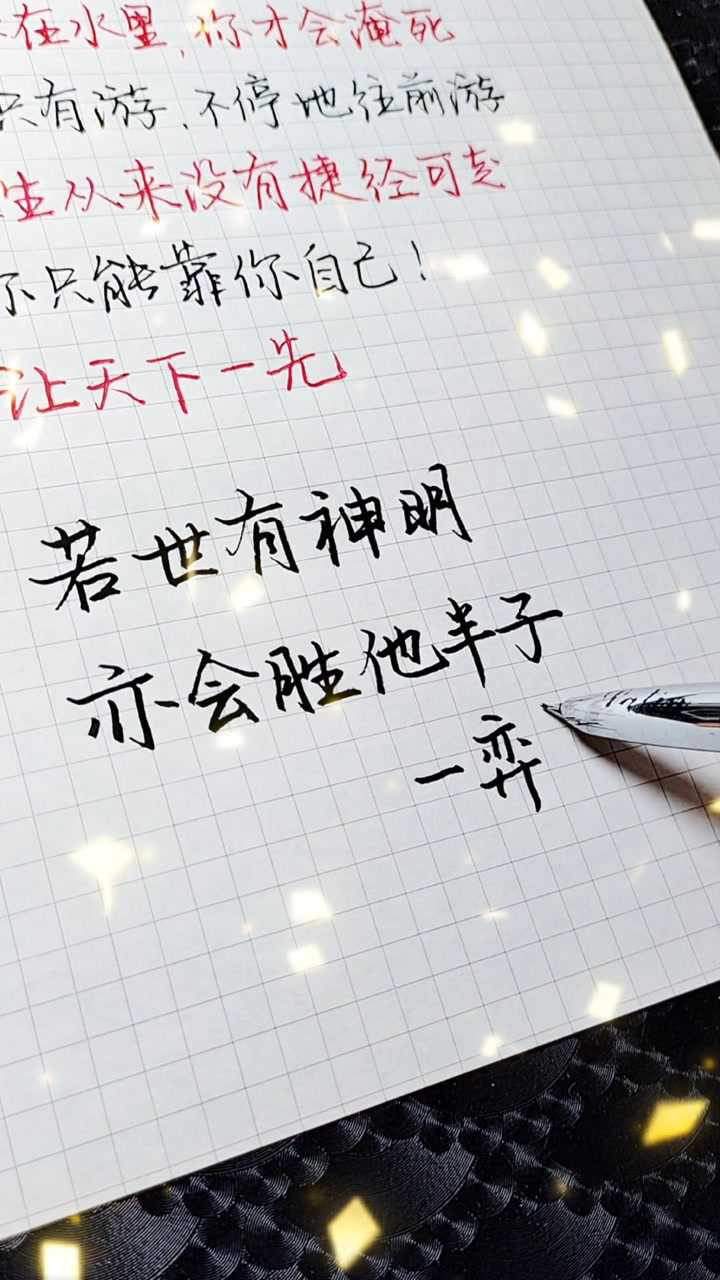 在水里,你才会淹死
只有游,不停地往前游
生从来没有捷径可走
你只能靠你自己!
让天下一先
若世有神明
亦会胜他半子
一弈